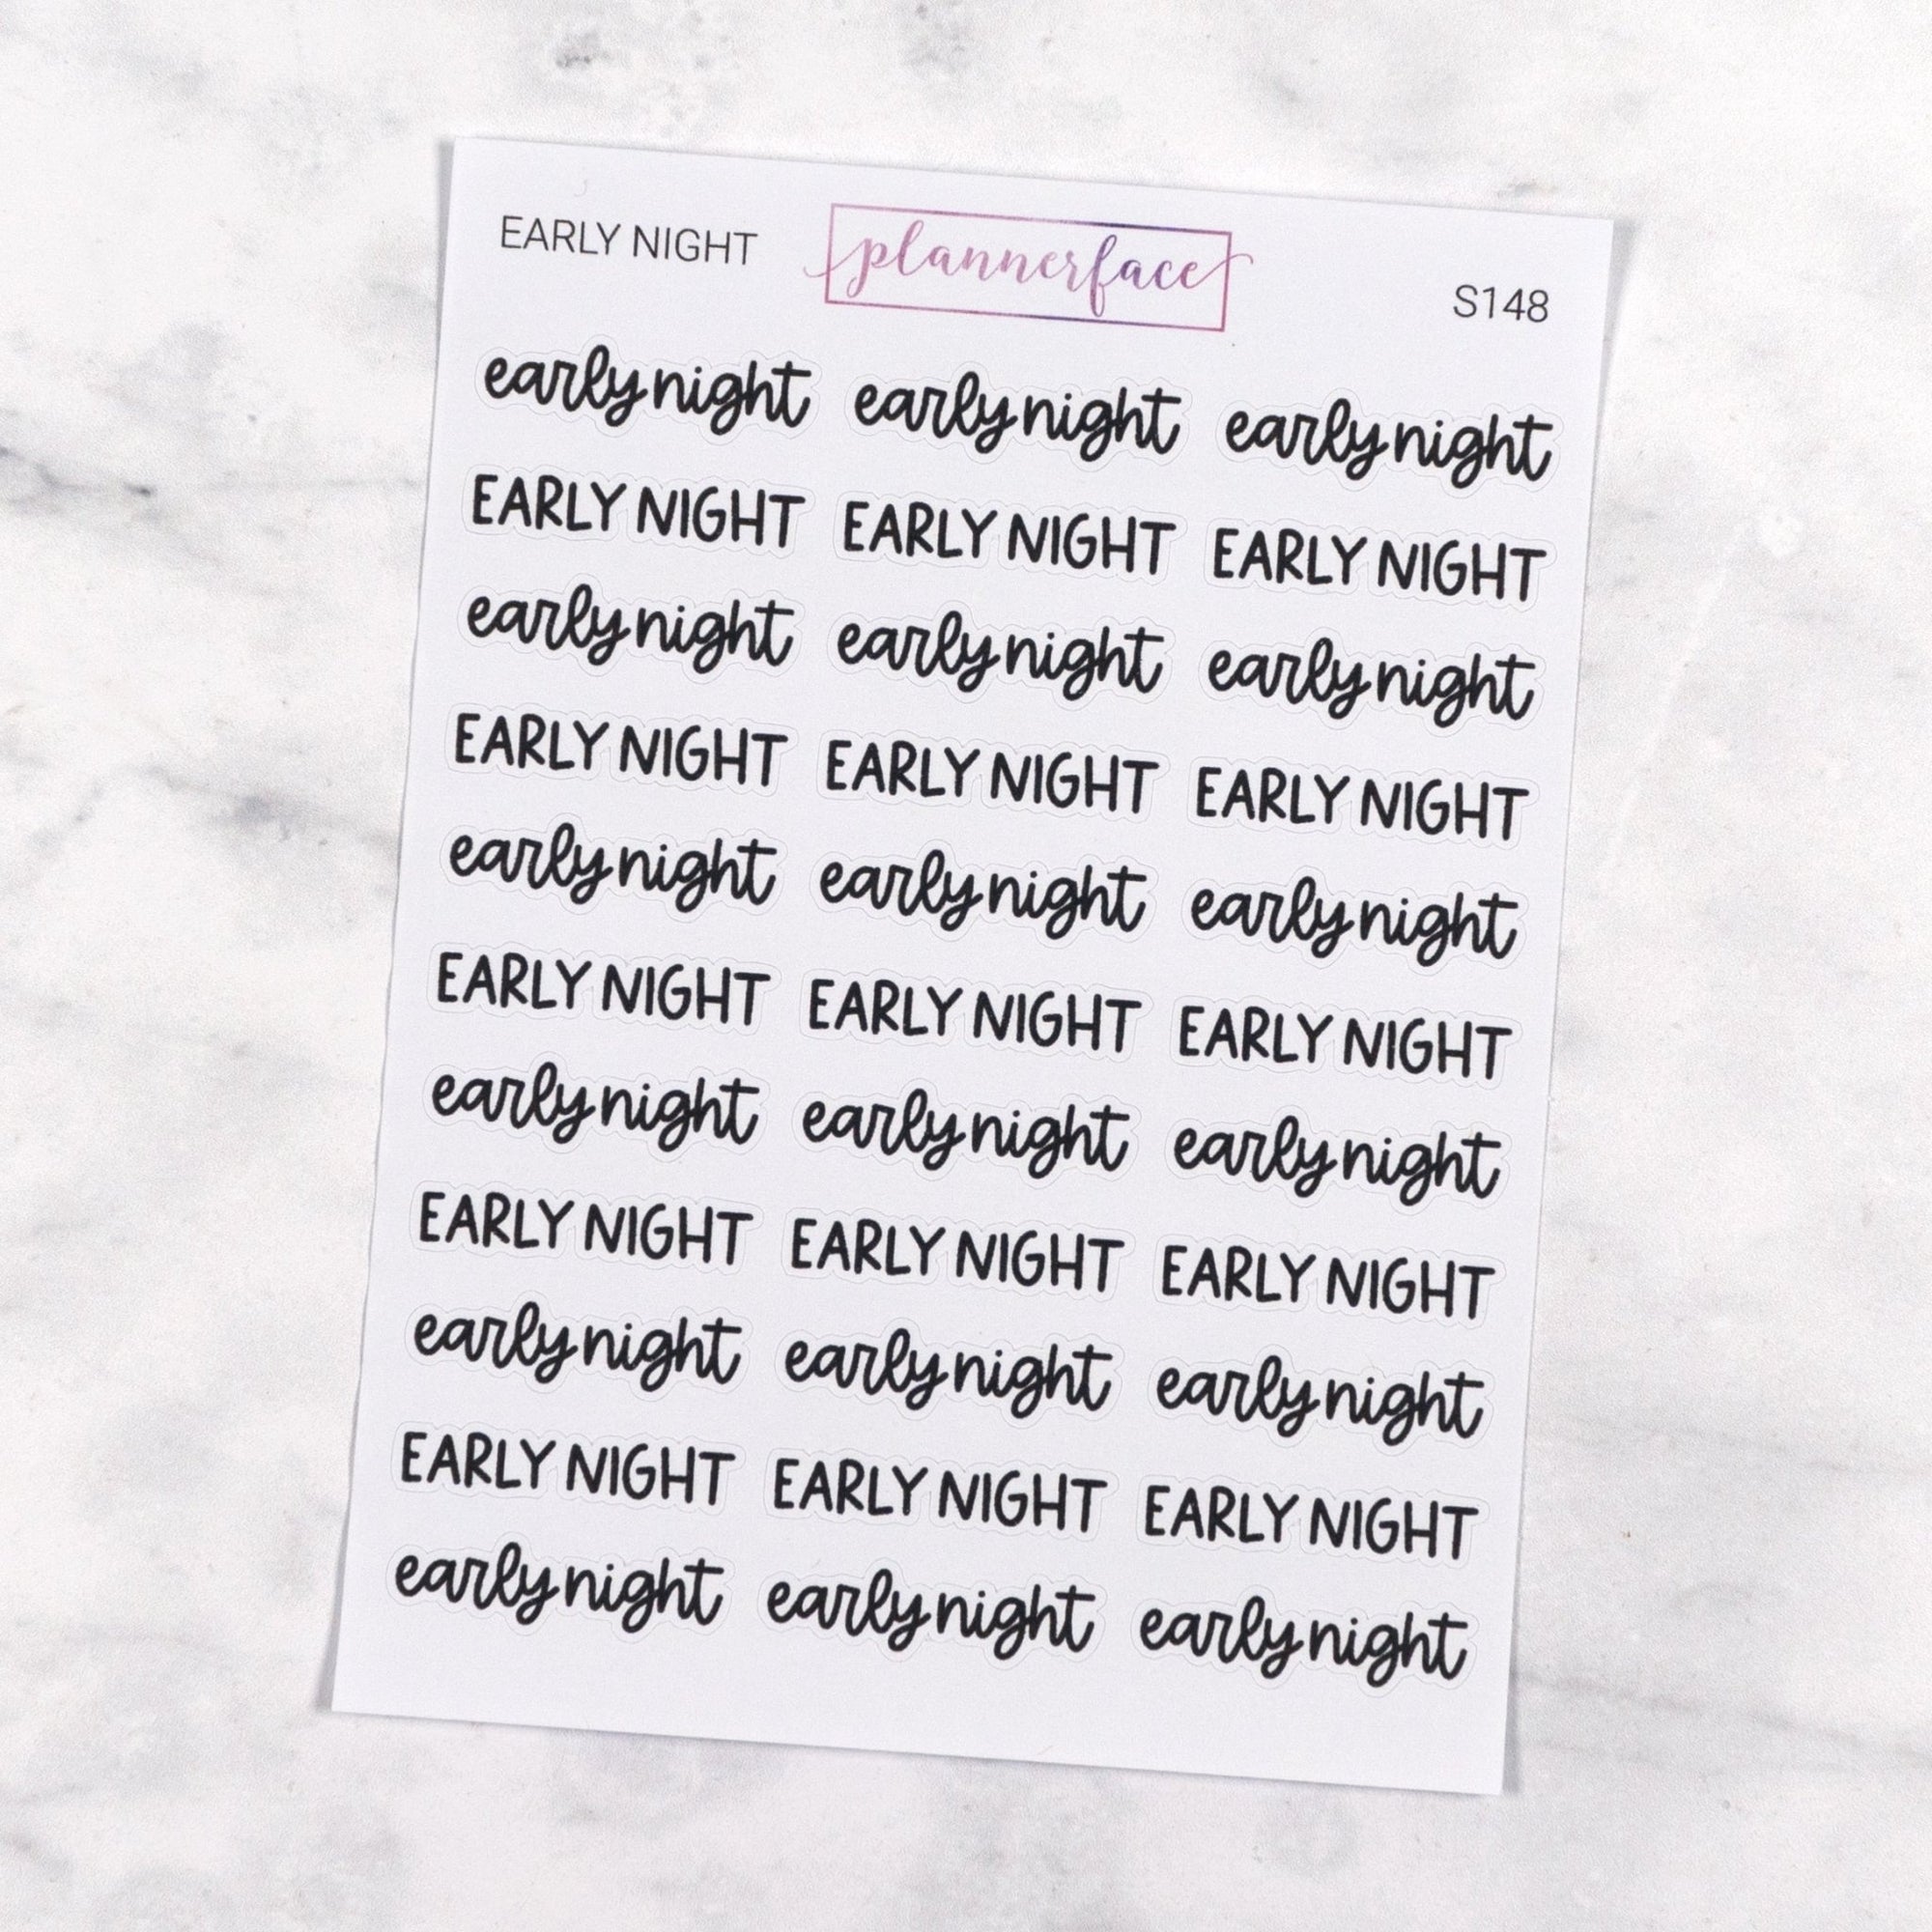 EARLY NIGHT plannerface S148
early night early night early night
EARLY NIGHT EARLY NIGHT EARLY NIGHT
early night early night early night
EARLY NIGHT EARLY NIGHT EARLY NIGHT
early night early night early night
EARLY NIGHT EARLY NIGHT EARLY NIGHT
early night early night early night
EARLY NIGHT EARLY NIGHT EARLY NIGHT
early night early night early night
EARLY NIGHT EARLY NIGHT EARLY NIGHT
early night early night early night